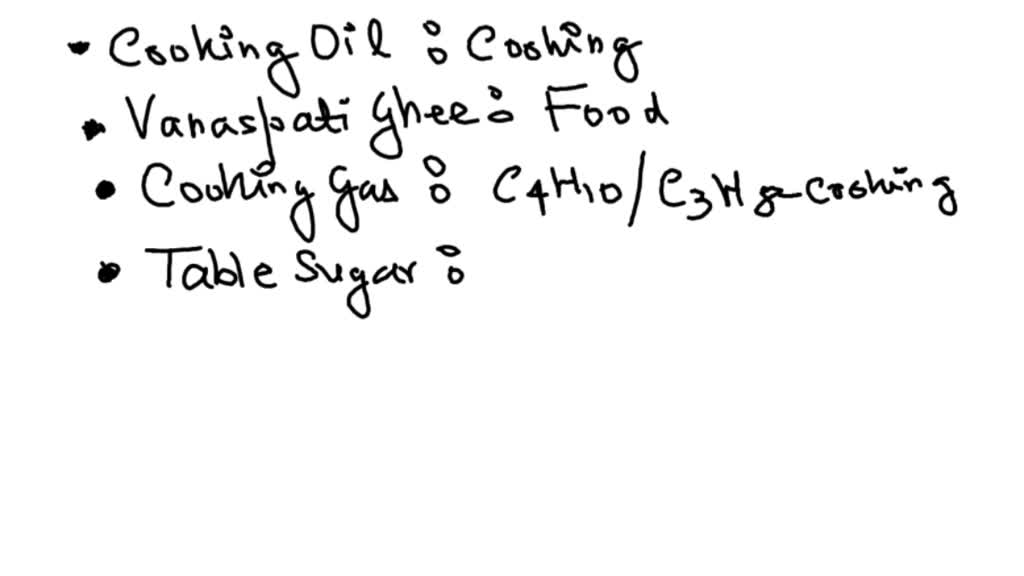 • Cooking Oil : Cooking
• Vanaspati Ghee : Food
• Cooking Gas : C4H10/C3H8-cooking
• Table Sugar :